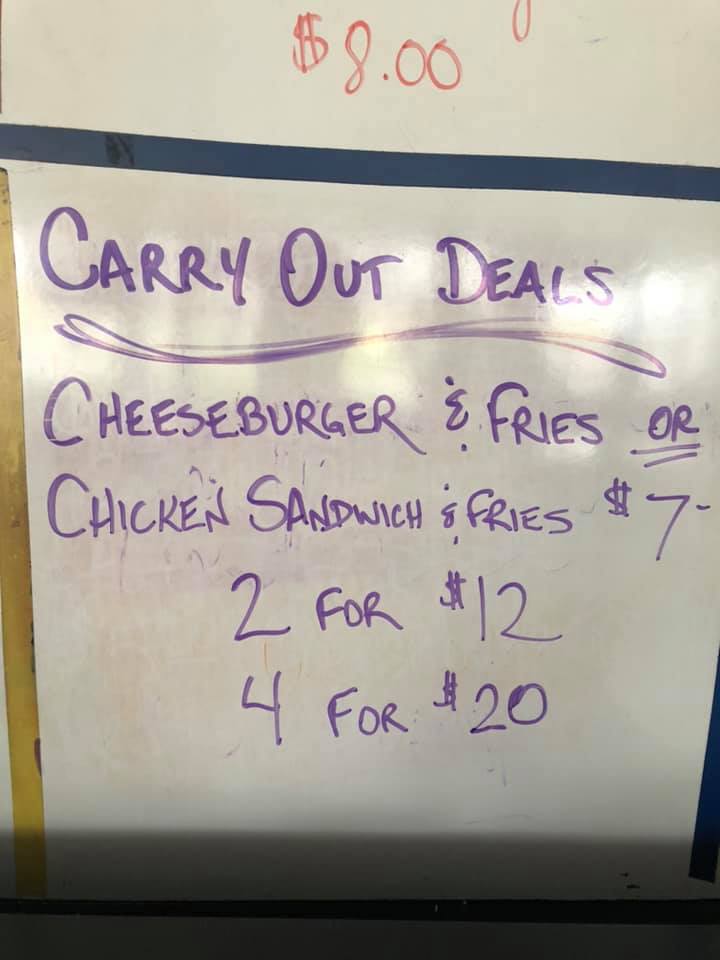 $8.00
CARRY OUT DEALS
CHEESEBURGER & FRIES OR
CHICKEN SANDWICH & FRIES $7-
2 FOR $12
4 FOR $20